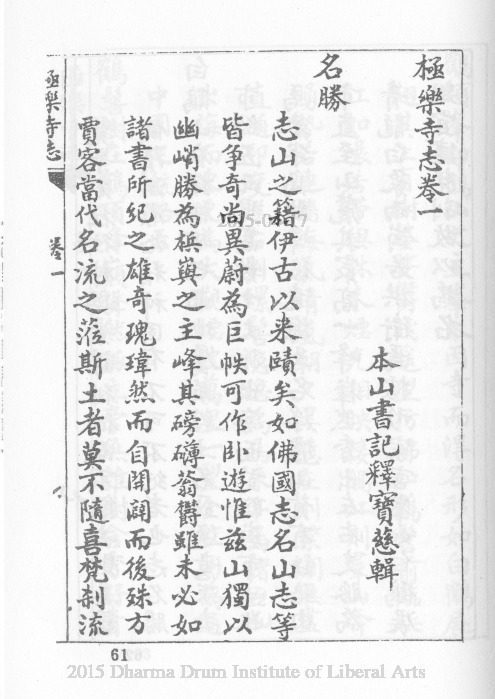 極樂寺志卷一
本山書記釋寶慈輯
名勝
志山之籍伊古以来賾矣如佛國志名山志等
皆争奇尚異蔚為巨帙可作卧遊惟兹山獨以
幽峭勝為梹嶼之主峰其磅礴蓊欝雖未必如
諸書所紀之雄奇瑰瑋然而自開闢而後殊方
賈客當代名流之蒞斯土者莫不隨喜梵刹流
極樂寺志
卷一
61
2015 Dharma Drum Institute of Liberal Arts